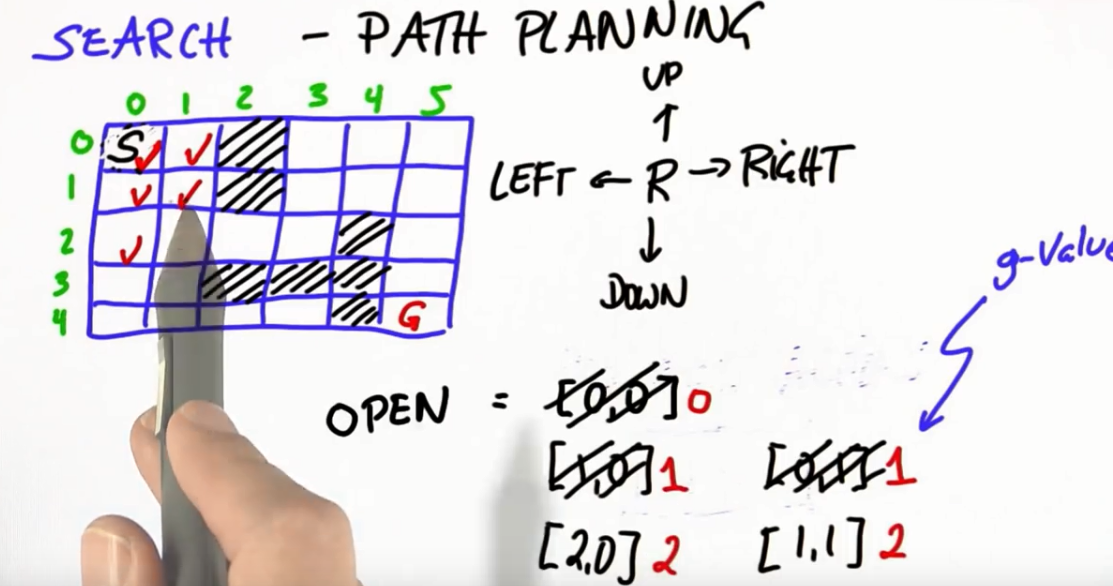 SEARCH - PATH PLANNING
UP
0 1 2 3 4 5
0 S
LEFT ← R → RIGHT
1
2
3
DOWN
4 G
g-Value
OPEN = [0,0] 0
[1,0] 1 [0,1] 1
[2,0] 2 [1,1] 2